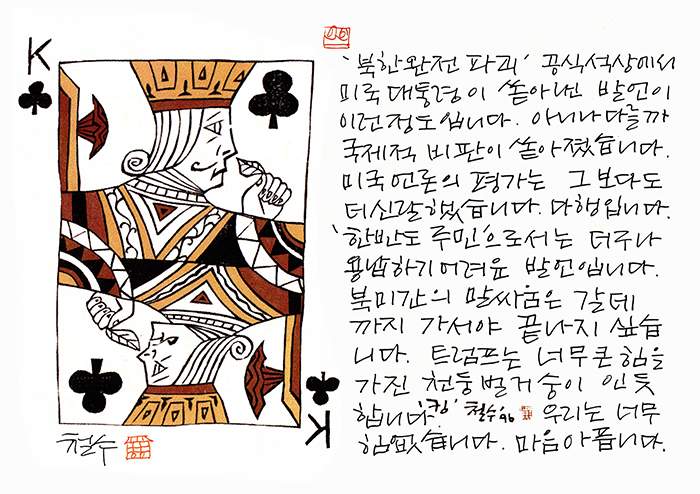 K
'북한완전 파괴' 공식석상에서
미국 대통령이 쏟아낸 발언이
이런정도입니다. 아니나다를까
국제적 비판이 쏟아졌습니다.
미국 언론의 평가는 그보다도
더신랄했습니다. 다행입니다.
'한반도 주민'으로서는 더구나
용납하기어려운 발언입니다.
북미간의 말싸움은 갈데
까지 가서야 끝나지 싶습
니다. 트럼프는 너무큰힘을
가진 천둥벌거숭이 인듯
합니다. '킹' 철수96 우리는 너무
힘없습니다. 마음아픕니다.
K
철수